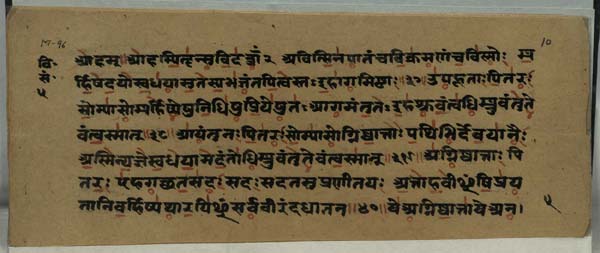 आहम् आहम्पितॄन्त्सुविदत्राँ२ अवित्सिनपातंचविक्रमणंचविष्णोः ब
र्हिषदोयेस्वधयासुतस्यभजंतपित्वस्तःइहागमिष्ठाः ३७ उपहूताःपितरः
सोम्यासोबर्हिष्येषुनिधिषुप्रियेषुतःआगमंतुतःइहश्रुवंत्वधिब्रुवंतुते
वंत्वस्मान् ३८ आयंतुनःपितरःसोम्यासोग्निष्वात्ताः पथिभिर्देवयानैः
अस्मिन्यज्ञेस्वधयामदंतोधिब्रुवंतुतेवंत्वस्मान् ३९ अग्निष्वात्ताः पि
तरः एहगछतसदः सदः सदतसुप्रणीतयः अत्ताहवीꣳषिप्रय
तानिबर्हिष्यथारयिꣳसर्ववीरंदधातन ४० येअग्निष्वात्तायेअन।